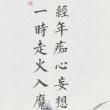 經年痴心妄想
一時走火入魔